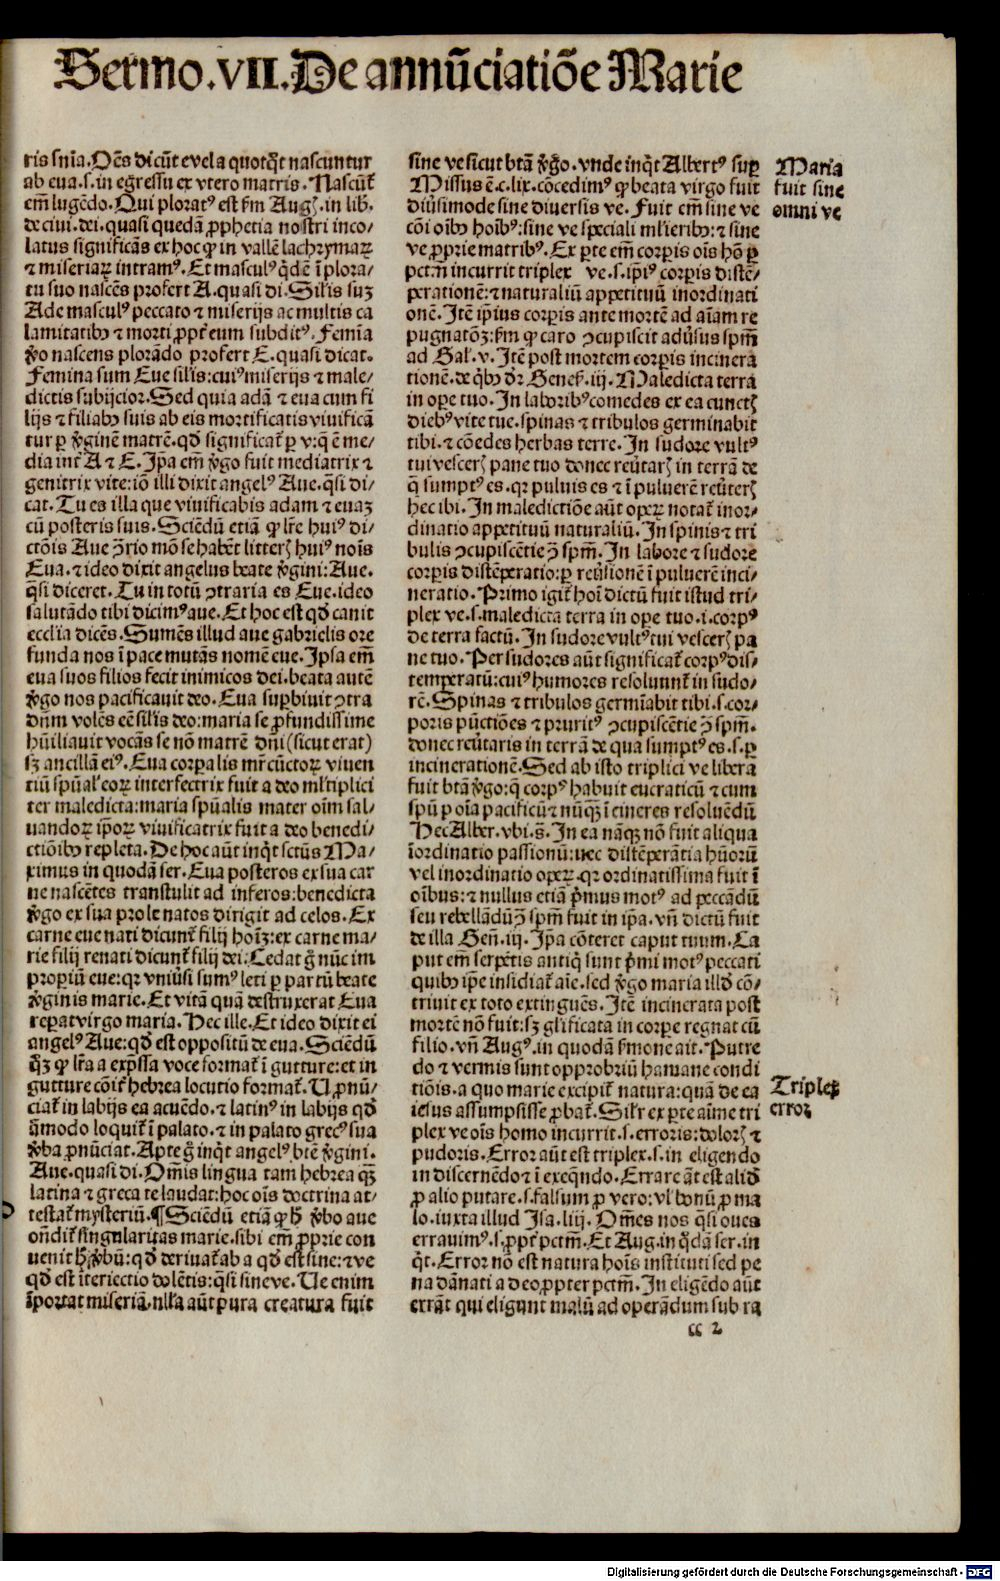 Sermo.VII.De annũciatiõe Marie
ris sn̄ia.Oẽs dicũt e vel a quotqͥt nascuntur
ab eua.s.in egr̃essu ex vtero matris.Nascũt᷑
em̃ lugẽdo.Qui ploratꝰ est ẜm Augꝭ.in lib̃.
de ciui.dei.quasi quedã ꝓphetia nostri inco/
latus significãs ex hoc ꝙ in vallẽ lachrymaꝝ
⁊ miseriaꝝ intramꝰ.Et masculꝰ qͥdẽ ĩ plora/
tu suo nascẽs profert A.quasi di.Silis suꝫ
Ade masculꝰ peccato ⁊ miserijs ac multis ca
lamitatibꝰ ⁊ morti ꝓpt̃ eum subditꝰ.Femĩa
ṽo nascens plorãdo profert E.quasi dicat.
Femina sum Eue silis:cuiꝰ miserijs ⁊ male/
dictis subijcior.Sed quia adã ⁊ eua cum fi
lijs ⁊ filiabꝰ suis ab eis mortificatis viuificã
tur ꝑ ṽginẽ matrẽ.qđ significat᷑ ꝑ v:q̃ ẽ me/
dia int̃ A ⁊ E.Ip̃a em̃ ṽgo fuit mediatrix ⁊
genitrix vite:iõ illi dixit angelꝰ Aue.q̃si di/
cat.Tu es illa que viuificabis adam ⁊ euaꝫ
cũ posteris suis.Sciẽdũ etiã ꝙ lr̃e huiꝰ di/
ctõis Aue ꝯ̃rio mõ se habẽt litterꝭ huiꝰ noĩs
Eua.⁊ ideo dixit angelus beate ṽgini:Aue.
q̃si diceret.Tu in totũ ꝯtraria es Eue.ideo
salutãdo tibi dicimꝰ aue.Et hoc est qđ canit
ecclĩa dicẽs.Sumẽs illud aue gabrielis ore
funda nos ĩ pace mutãs nomẽ eue.Ipsa em̃
eua suos filios fecit inimicos dei.beata autẽ
ṽgo nos pacificauit deo.Eua suꝑbiuit ꝯtra
dñm volẽs eẽ silĩs deo:maria se ꝓfundissime
hũiliauit vocãs se nõ matrẽ dñi(sicut erat)
sꝫ ancillã eiꝰ.Eua corꝑalis mr̃ cũctoꝝ viuen
tiũ spũal' eoꝝ interfectrix fuit a deo ml'tiplici
ter maledicta:maria spũalis mater oĩm sal/
uandoꝝ ip̃oꝝ viuificatrix fuit a deo benedi/
ctiõibꝰ repleta.De hoc aũt inqͥt sctũs Ma/
ximus in quodã ser.Eua posteros ex sua car
ne nascẽtes transtulit ad inferos:benedicta
ṽgo ex sua prole natos dirigit ad celos.Ex
carne eue nati dicunt᷑ filij hoĩꝫ:ex carne ma/
rie filij renati dicunt᷑ filij dei:Cedat g̃ nũc im
ꝓpriũ eue:qꝛ vniũsi sumꝰ leti ꝑ partũ beate
ṽginis marie.Et vitã quã destruxerat Eua
reꝑat virgo maria.Hec ille.Et ideo dixit ei
angelꝰ Aue:qđ est oppositũ de eua.Sciẽdũ
qͥꝫ ꝙ lr̃a a exp̃ssa voce format᷑ ĩ gutture:et in
gutture cõit᷑ hebrea locutio format᷑.U ꝓnũ/
ciat᷑ in labijs ea acuẽdo.⁊ latinꝰ in labijs qđ
q̃modo loquit᷑ ĩ palato.⁊ in palato grecꝰ sua
ṽba ꝓnũciat.Apte g̃ inqͥt angelꝰ btẽ ṽgini.
Aue.quasi di.Om̃is lingua tam hebrea qꝫ̃
latina ⁊ greca te laudat:hoc oĩs doctrina at/
testat᷑ mysteriũ.¶Sciẽdũ etiã ꝙ h̊ ṽbo aue
oñdit᷑ singularitas marie.sibi em̃ ꝓprie con
uenit h̊ ṽbũ:qđ deriuat᷑ ab a qđ est sine:⁊ ve
qđ est ĩteriectio dolẽtis:q̃si sine ve.Ue enim
ĩportat miseriã.nlla aũt pura creatura fuit
sine ve sicut btã ṽgo.vnde inqͥt Albertꝰ suꝑ
Missus ẽ.c.lix.cõcedimꝰ ꝙ beata virgo fuit
diũsimode sine diuersis ve.Fuit em̃ sine ve
cõi oĩbꝰ hoĩbꝰ:sine ve speciali ml'ieribꝰ:⁊ sine
ve ꝓprie matribꝰ.Ex ꝑte em̃ corꝑis oĩs hõ ꝑ
pctm̃ incurrit triplex ve.s.ip̃iꝰ corꝑis distẽ/
ꝑationẽ:⁊ naturaliũ appetituũ inordinati
onẽ.Itẽ ip̃ius corꝑis ante mortẽ ad aĩam re
pugnatõꝫ:ẜm ꝙ caro ꝯcupiscit adũsus spm̃
ad Gal'.v.Itẽ post mortem corꝑis incinera
tionẽ.de qͥbꝰ dr̃ Genes̃.iij.Maledicta terra
in oꝑe tuo.In laboribꝰ comedes ex ea cunctꝭ
diebꝰ vite tue.spinas ⁊ tribulos germinabit
tibi.⁊ cõedes herbas terre.In sudore vultꝰ
tui vescerꝭ pane tuo donec reũtarꝭ in terrã de
q̃ sumptꝰ es.qꝛ puluis es ⁊ ĩ puluerẽ reũterꝭ
hec ibi.In maledictiõe aũt oꝑꝝ notat᷑ inor/
dinatio appetituũ naturaliũ.In spinis ⁊ tri
bulis ꝯcupiscẽtie ꝯ̃ spm̃.In labore ⁊ sudore
corꝑis distẽꝑatio:ꝑ reũsionẽ ĩ puluerẽ inci/
neratio.Primo igit᷑ hoĩ dictũ fuit istud tri/
plex ve.s.maledicta terra in oꝑe tuo.i.corpꝰ
de terra factũ.In sudore vultꝰ tui vescerꝭ pa
ne tuo.Per sudores aũt significat᷑ corpꝰ dis/
temperatũ:cuiꝰ humores resoluunt᷑ in sudo/
rẽ.Spinas ⁊ tribulos germĩabit tibi.s.cor/
poris pũctiões ⁊ pruritꝰ ꝯcupiscẽtie ꝯ̃ spm̃.
donec reũtaris in terrã de qua sumptꝰ es.s.ꝑ
incinerationẽ.Sed ab isto triplici ve libera
fuit btã ṽgo:q̃ corpꝰ habuit eucraticũ ⁊ cum
spũ ꝑ oĩa pacificũ ⁊ nũqꝫ̃ ĩ cineres resoluẽdũ
Hec Alber.vbi.s̃.In ea nãqꝫ nõ fuit aliqua
ĩordinatio passionũ:nec distẽꝑãtia hũorũ
vel inordinatio oꝑꝝ.qꝛ ordinatissima fuit ĩ
oĩbus:⁊ nullus etiã p̃mus motꝰ ad peccãdũ
seu rebellãdũ ꝯ̃ spm̃ fuit in ip̃a.vñ dictũ fuit
de illa Geñ.iij.Ip̃a cõteret caput tuum.Ca
put em̃ serpẽtis antiqͥ sunt p̃mi motꝰ peccati
quibꝰ ip̃e insidiat᷑ aĩe.sed ṽgo maria illđ cõ/
triuit ex toto extinguẽs.Itẽ incinerata post
mortẽ nõ fuit:sꝫ gl'ificata in corꝑe regnat cũ
filio.vñ Augꝰ.in quodã ẜmone ait.Putre
do ⁊ vermis sunt opprobriũ humane condi
tiõis.a quo marie excipit᷑ natura:quã de ea
iesus assumpsisse ꝓbat᷑.Sil'r ex ꝑte aĩme tri
plex ve oĩs homo incurrit.s.erroris:dolorꝭ ⁊
pudoris.Error aũt est triplex.s.in eligendo
in discernẽdo ⁊ ĩ exeq̃ndo.Errare aũt est aliđ
ꝓ alio putare.s.falsum ꝓ vero:vl' bonũ ꝓ ma
lo.iuxta illud Isa.liij.Om̃es nos q̃si oues
errauimꝰ.s.ꝓpt̃ pctm̃.Et Aug.in qͦdã ser.in
qͥt.Error nõ est natura hoĩs instituti sed pe
na dãnati a deo ꝓpter pctm̃.In eligẽdo aũt
errãt qui eligunt malũ ad operãdum sub ra
cc 2
Maria
fuit sine
omni ve
Triplex
error
Digitalisierung gefördert durch die Deutsche Forschungsgemeinschaft - DFG